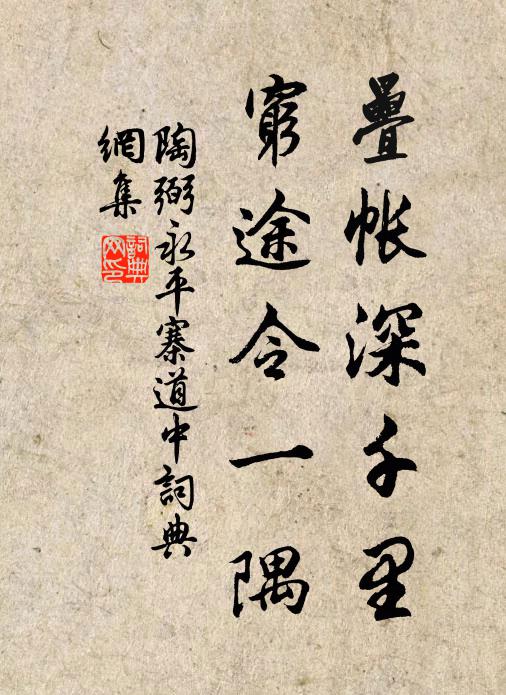 疊帳深千里
窮途合一隅
陶弼永平寨道中詞典
網集
詞典
网印